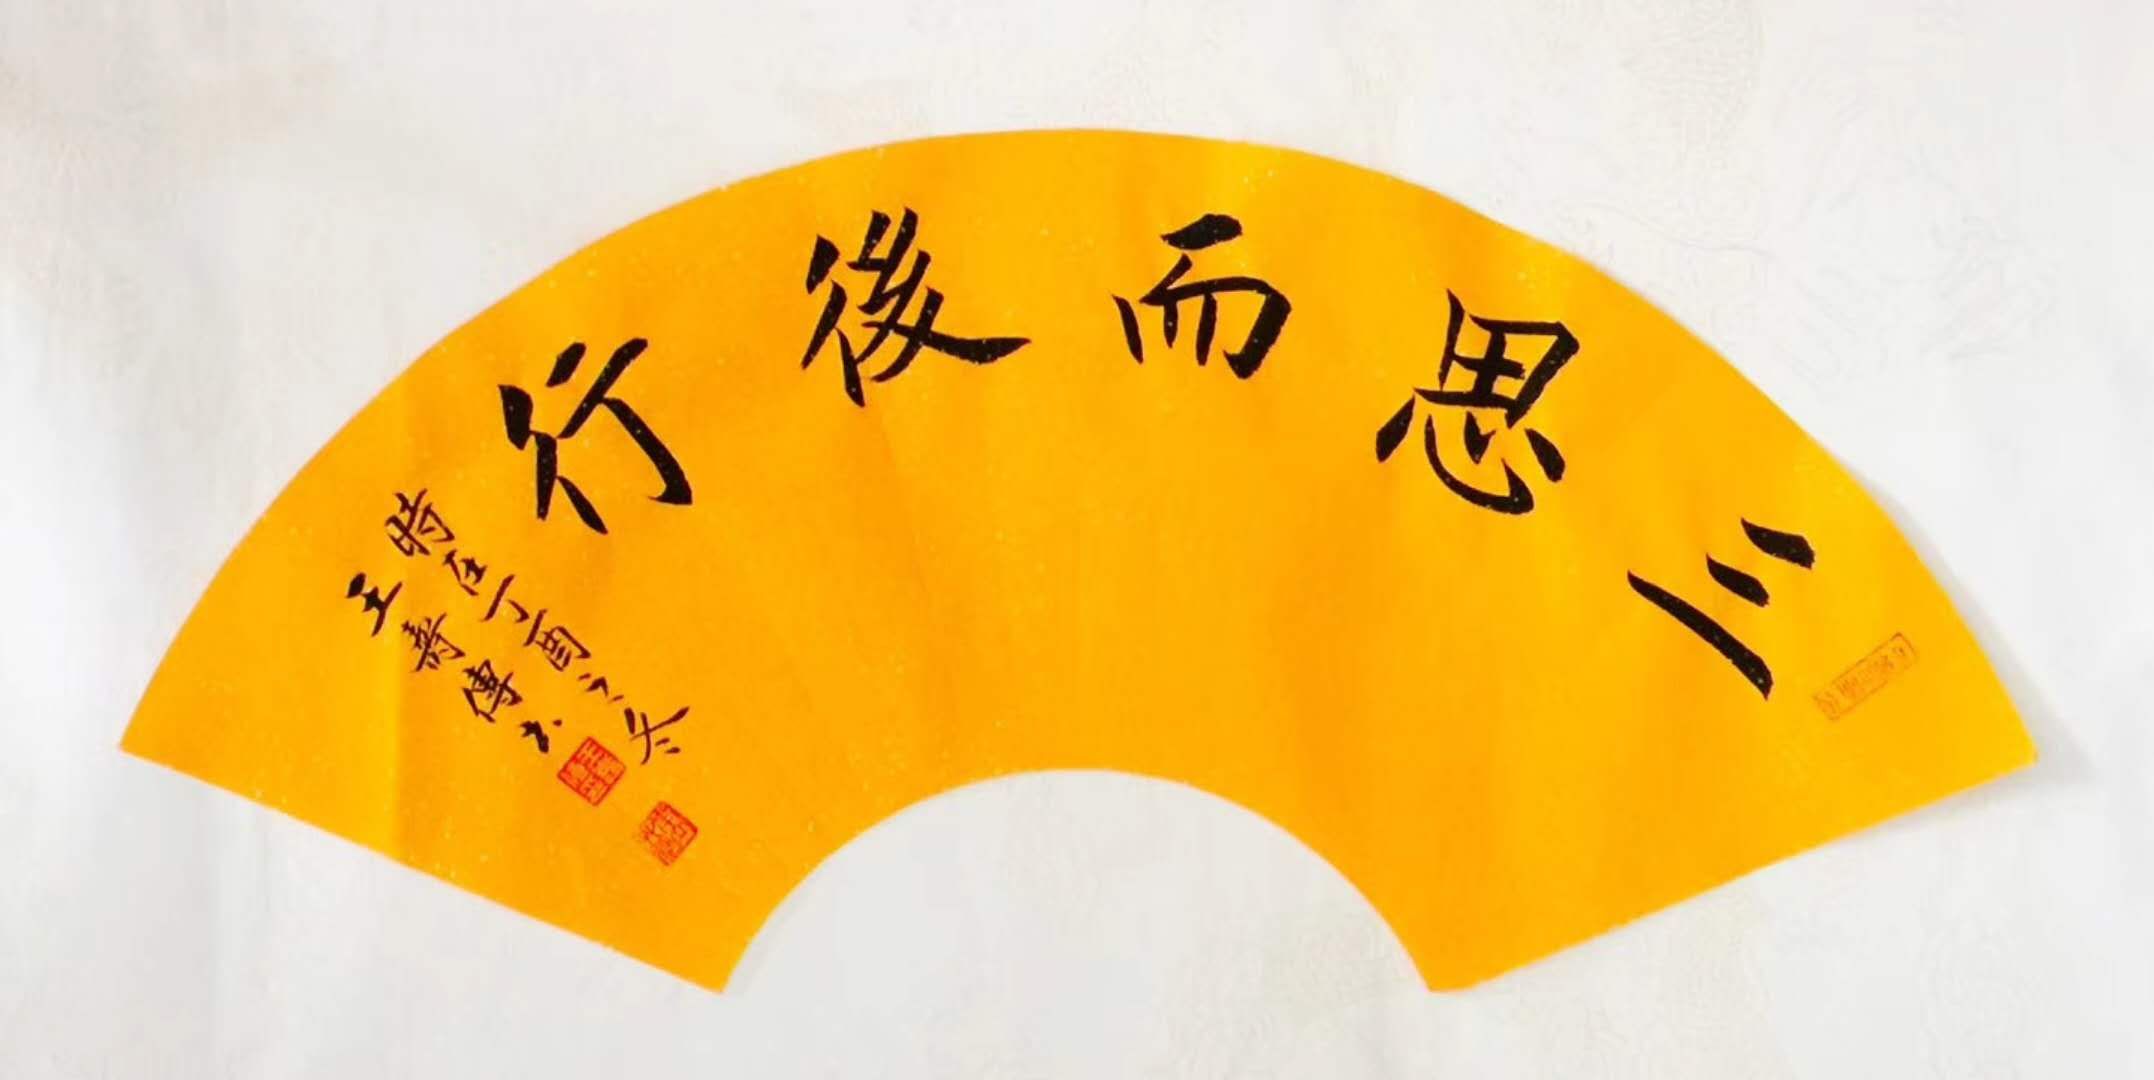 三思而後行
時在丁酉之冬
王壽傳书